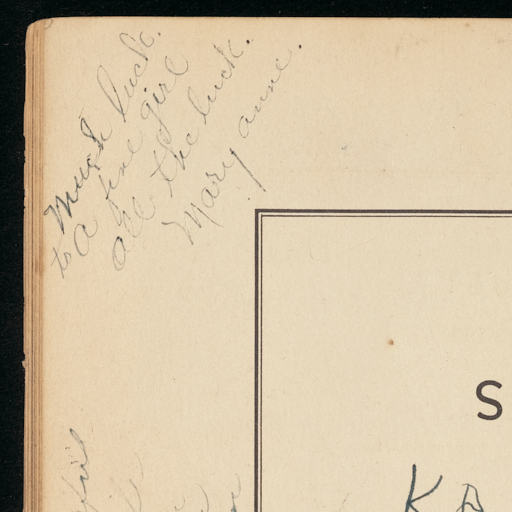 Much luck.
to a fine girl
all the luck.
Mary anne.
S
K